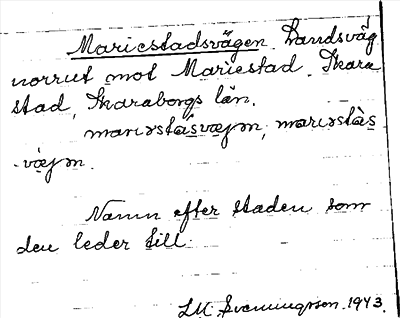 Mariestadsvägen. Landsväg
norrut mot Mariestad. Skara
stad, Skaraborgs län.
marıstásvæjın, marıstàs
-væjın.
Namn efter staden som
den leder till.
I.M. Svenningsson. 1943.